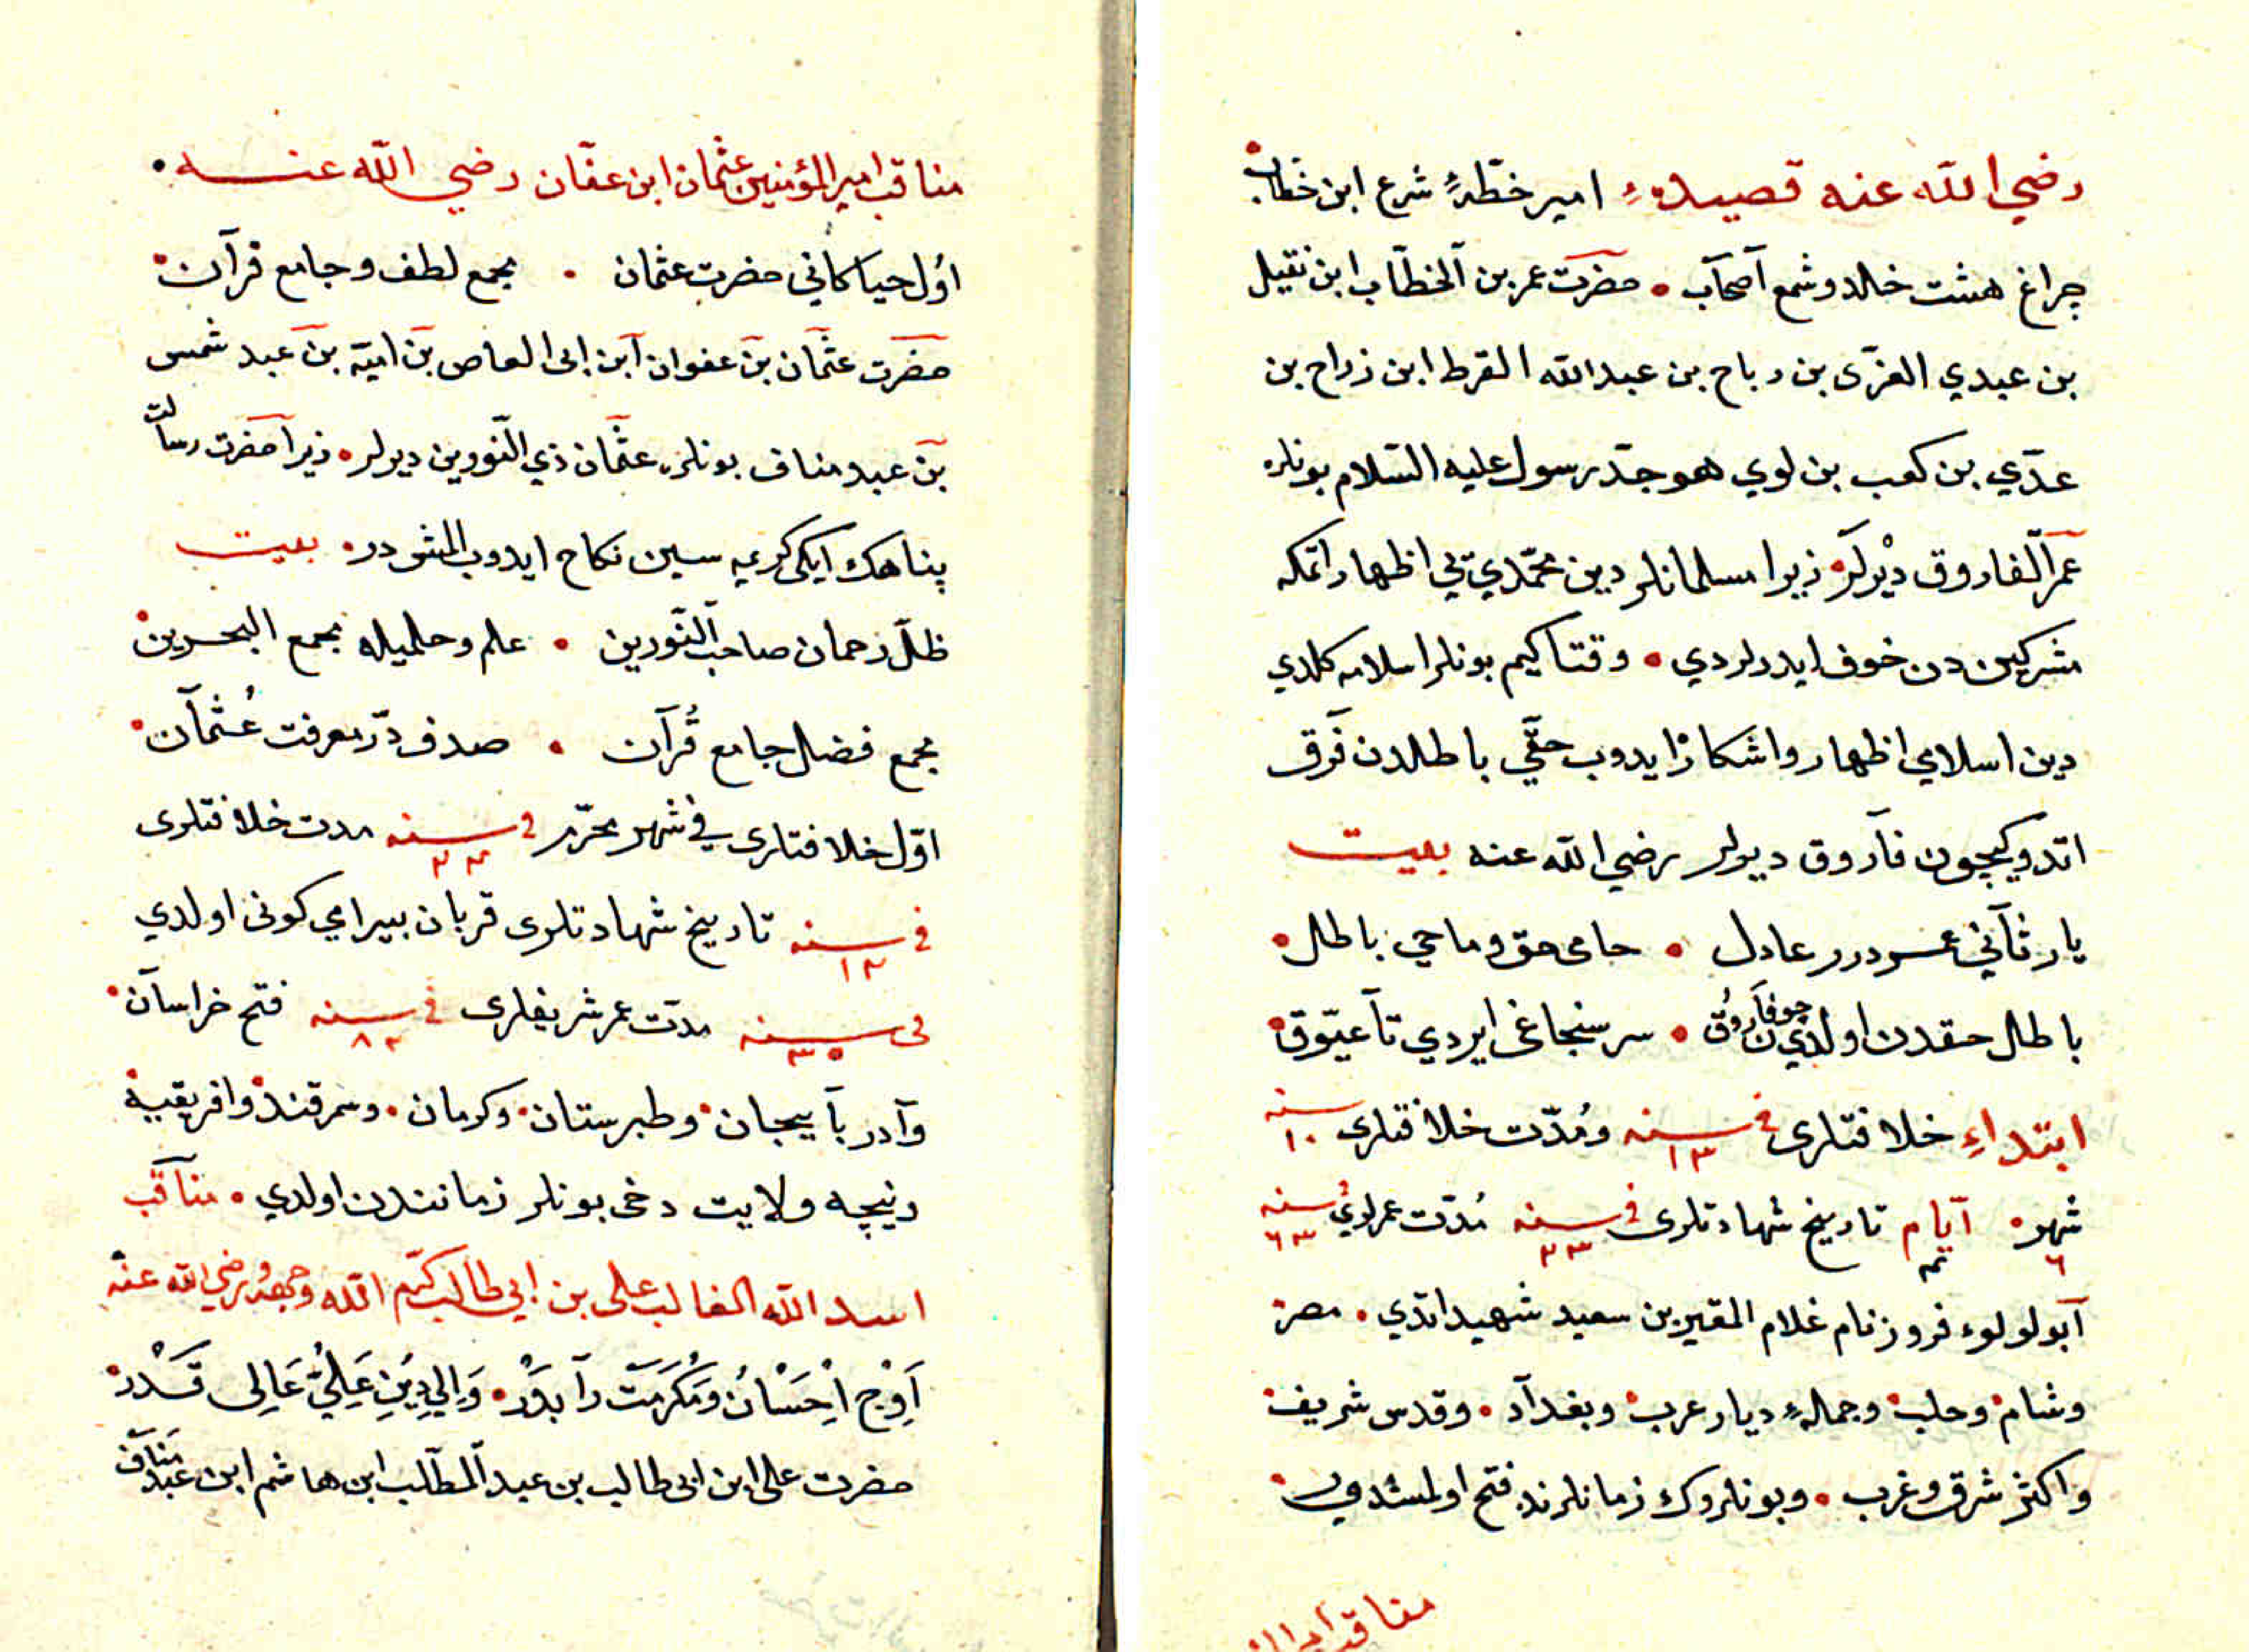 رضي الله عنه قصيده امير خطّهٔ شرع ابن خطاب
چراغ هشت خالد وشمع آصحاب • حضرت عمر بن الخطّاب ابن نقيل
بن عبدي العزّى بن رباح بن عبد الله القرط ابن زراح بن
عدّي بن كعب بن لوي هو جدّ رسول عليه السّلام بونلره
عمر الفاروق ديرلر • زيرا مسلمانلر دين محمّدي يي اظهار اتمكه
مشركين دن خوف ايدرلردي • وقتاكيم بونلر اسلامه كلدي
دين اسلامي اظهار واشكارا ايدوب حقّي باطلدن فرق
اتدوكيچون فاروق ديرلر رضي الله عنه بيت
يار ثاني عمردرر عادل • حامى حق وماحي باطل •
باطل حقدن اولدي چون فاروق • سر سنجاغى ايردي تا عيّوق •
ابتداءِ خلافتلرى في سنه ١٣ ومُدّت خلافتلرى سنه ١٠
شهر ٦ آيام تاريخ شهادتلرى في سنه ٢٣ مُدّت عمرلري سنه ٦٣
آبو لولوء فروز نام غلام المقير بن سعيد شهيد اتدي • مصر
وشام • وحلب • وجملهٔ ديار عرب • وبغداد • وقدس شريف •
واكثر شرق وغرب • وبونلروك زمانلرنده فتح اولمشدر
مناقب
مناقب امير المؤمنين عثمان ابن عفّان رضي الله عنه •
اوّل حيا كاني حضرت عثمان • مجمع لطف وجامع قرآن •
حضرت عثمان بن عفوان ابن ابى العاص بن اميّه بن عبد شمس
بن عبد مناف بونلره عثمان ذي النّورين ديرلر • زيرا حضرت رسالت
پناهك ايكى كريمه سين نكاح ايدوب المش در • بيت
ظلّ رحمان صاحب النّورين • علم وحلميله مجمع البحرين •
مجمع فضل جامع قُرآن • صدف درّ معرفت عُثمان •
اوّل خلافتلرى في شهر محرّم في سنه ٢٣ مدت خلافتلرى
في سنه ١٢ تاريخ شهادتلرى قربان بيرامي كونى اولدي
في سنه ٣٥ مدّت عمر شريفلرى في سنه ٨٢ فتح خراسان •
وآدربآييجان • وطبرستان • وكرمان • وسمرقند • وافريقيه •
ونيچه ولايت دخى بونلر زمانندن اولدي • مناقب
اسد الله الغالب على بن ابي طالب كرّم الله وجهه ورضي الله عنه
اَوْجِ اِحْسَانُ ومَكْرَمَتْ رآ بَدْر • وَالِيِ دِينِ عَلِيُّ عَالِى قَدْر •
حضرت على ابن ابى طالب بن عبد المطّلب ابن هاشم ابن عبد مناف